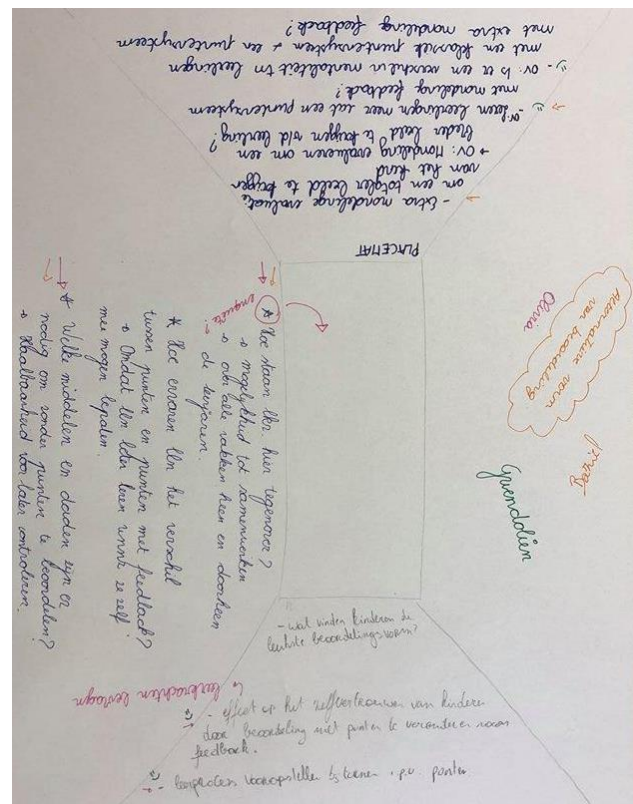 PLACEMAT
- Extra mondelinge evaluatie
om een totaler beeld te krijgen
van het kind
→ OV: Mondeling evalueren om een
breder beeld te krijgen v/d leerling?
- OV: Leren leerlingen meer uit een puntensysteem
met mondeling feedback?
- OV: Is er een verschil in mentaliteit tss leerlingen
met een klassiek puntensysteem & een puntensysteem
met extra mondeling feedback?
* Hoe staan lkr. hier tegenover?
enquête?
→ mogelijkheid tot samenwerken
→ over alle vakken heen en doorheen
de leerjaren.
* Hoe ervaren lln het verschil
tussen punten en punten met feedback?
→ Omdat lln beter leren wnnr ze zelf
mee mogen bepalen.
* Welke middelen en daden zijn er
nodig om zonder punten te beoordelen?
→ Haalbaarheid voor later controleren.
Alternatieve vorm
van beoordeling
Olivia
Gwendolien
- wat vinden kinderen de
leukste beoordelingsvorm?
↳ leerkrachten bevragen
- effect op het zelfvertrouwen van kinderen
door beoordeling met punten te veranderen naar
feedback.
- leerproces vooropstellen i.p.v. punten